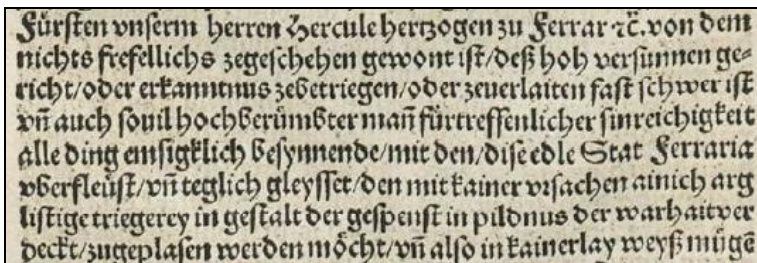 Fürsten vnserm herren Hercule hertzogen zu Ferrar ꝛc̃. von dem
nichts frefellichs zegeschehen gewont ist/deß hoh versunnen ge⸗
richt/oder erkanntnus zebetriegen/oder zeuerlaiten fast schwer ist
vñ auch souil hochberümbter mañ fürtreffenlicher sinreichigkeit
alle ding emsigklich besynnende/mit den/dise edle Stat Ferraria
vberfleüst/vñ teglich gleysset/den mit kainer vrsachen ainich arg
listige triegerey in gestalt der gespenst in pildnus der warhait ver
deckt/zugeplasen werden möcht/vñ also in kainerlay weyß mügē